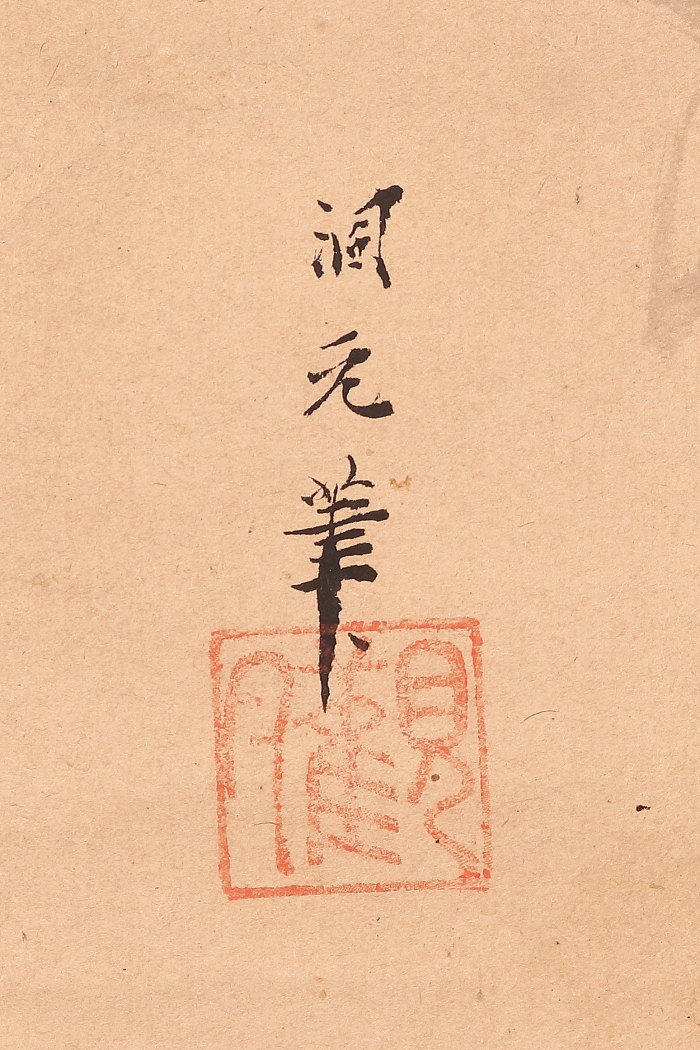 洞元筆